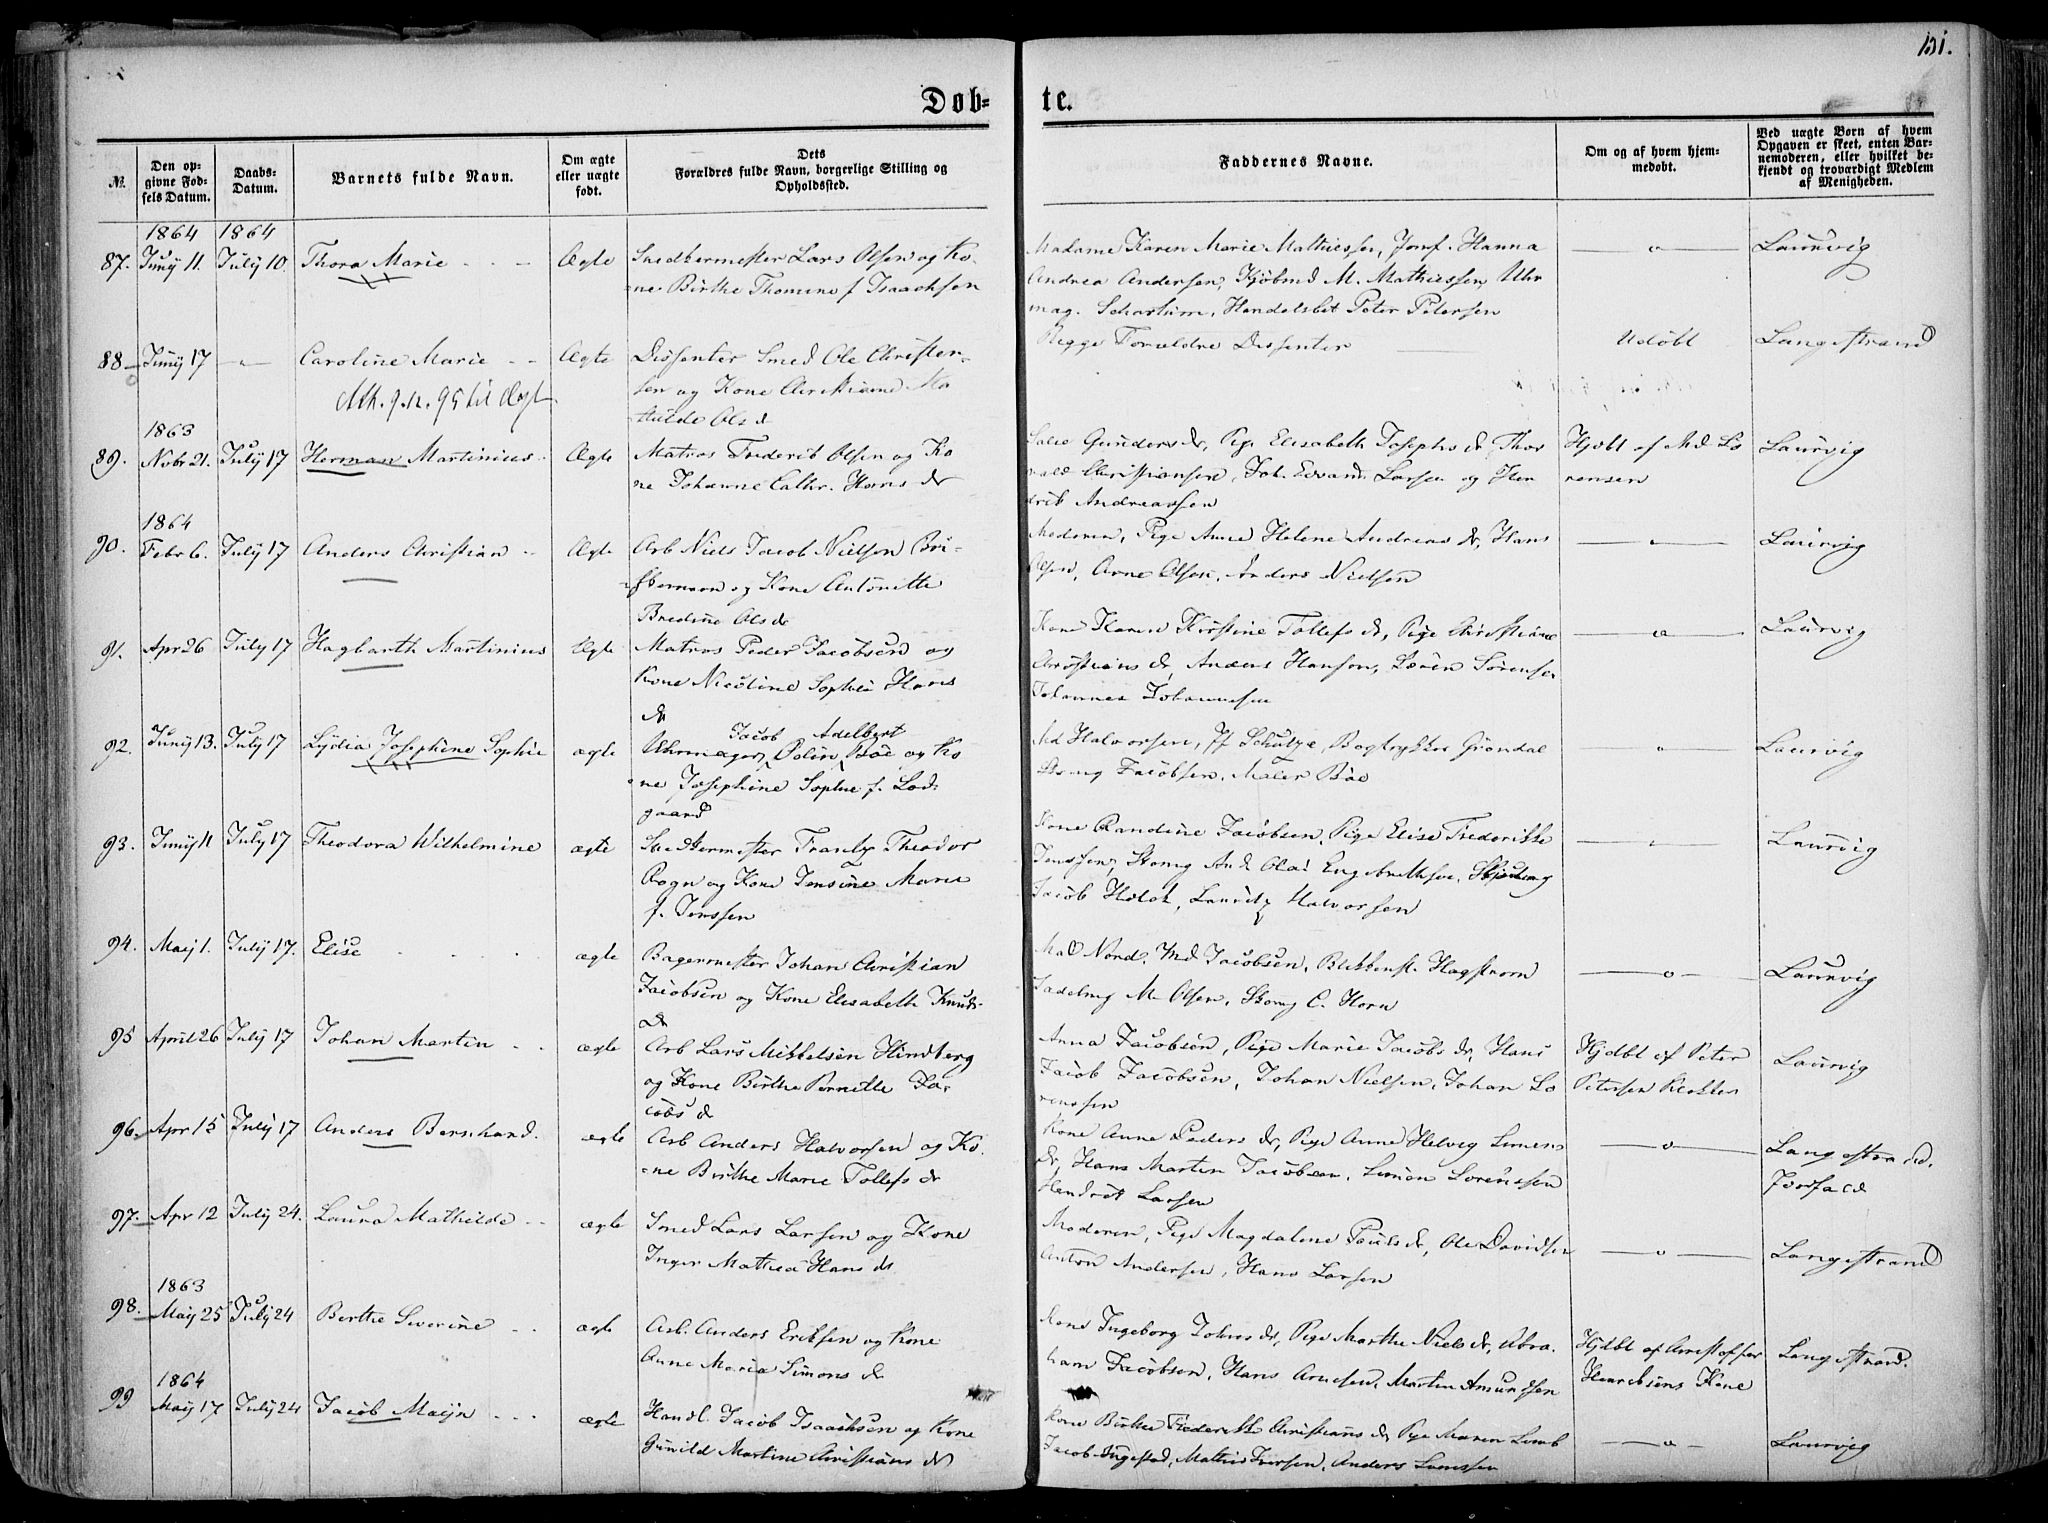 151.
Døb=
te.
№.
Den op-
givne Fød-
sels Datum.
Daabs-
Datum.
Barnets fulde Navn.
Om ægte
eller uægte
født.
Dets
Forældres fulde Navn, borgerlige Stilling og
Opholdssted.
Faddernes Navne.
Om og af hvem hjem-
medøbt.
Ved uægte Børn af hvem
Opgaven er skeet, enten Bar-
nemoderen, eller hvilket be-
kjendt og troværdigt Medlem
af Menigheden.
1864 1864
87. Juny 11. July 10. Thora Marie Ægte Snedkermester Lars Olsen og Ko-
ne Birthe Thomine f Isaachsen
Madame Karen Marie Mathiessen, Jomf. Hanna
Andrea Andersen, Kjøbmd M. Mathiessen, Uhr
mag. Schartum, Handelsbet Peter Petersen
Laurvig
88 Juny 17 Caroline Marie Ægte Dissenter Smed Ole Christen-
sen og Kone Christiane Ma
thilde Ols d
Att. 9.12.95 til
Begge Forældre Dissenter
Udøbt
Langestrand
1863
89. Novbr 21. July 17 Herman Martinius Ægte Matros Frederik Olsen og Ko
ne Johanne Cathr. Hans dr
Gunders dr, Pige Elisabeth Josephs d Thor
vald Christiansen, Joh. Edvard Larsen og Hen
drik Andreassen
Hjdbt af Md Lo
rensen
Laurvig
1864
90. Febr 6. July 17 Anders Christian Ægte Arb Niels Jacob Nielsen
og Kone Antonette
Bredine Ols dr
Moderen, Pige Anne Helene Andreas dr, Hans
Olsen, Arne Olsen, Anders Nielsen
Laurvig
91. Apr 26 July 17 Hagbarth Martinius Ægte Matros Peder Jacobsen og
Kone Nicoline Sophie Hans
dr
Kone Karen Kirstine Tollefs dr, Pige Christiane
Christians dr, Anders Hansen, Søren Sørensen
Johannes Johannesen
Laurvig
92. Juny 13. July 17 Lydia Josephine Sophie ægte Jacob Adelbert
Uhrmager Odin Bøe og Ko
ne Josephine Sophie f. Lød-
gaard
Md Halvorsen, Jf Schutze, Bogtrykker Grøndal
Skomg Jacobsen, Maler Bøe
Laurvig
93. Juny 11 July 17 Theodora Wilhelmine ægte Snedkermester Frantz Theodor
Rogn og Kone Jensine Marie
f. Jenssen
Kone Randine Jacobsen, Pige Elise Frederikke
Jenssen, Skomg And Olai Engebrethsen,
Jacob Holdt, Lauritz Halvorsen
Laurvig
94. May 1. July 17. Elise ægte Bagermester Johan Christian
Jacobsen og Kone Elisabeth Knuds-
dr
Mad Nord, Md Jacobsen, Blikkensl. Hagstrøm
Sadelmg M. Olsen, Skomg C. Horn
Laurvig
95 April 26 July 17 Johan Martin ægte Arb Lars Mikkelsen Hindberg
og Kone Birthe Pernette Ja-
cobs dr
Anna Jacobsen, Pige Marie Jacobs dr, Hans
Jacob Jacobsen, Johan Nielsen, Johan Lo
renssen
Hjdbt af Peter
Petersen Klokker
Laurvig
96. Apr 15 July 17 Anders Bernhard. ægte Arb Anders Halvorsen og Ko.
ne Birthe Marie Tollefs dr
Kone Anne Peders dr, Pige Anne Helvig Simens
dr, Hans Martin Jacobsen, Simon Sørenssen
Hendrik Larsen
Langestrand.
97. Apr 12 July 24. Laura Mathilde ægte Smed Lars Larsen og Kone
Inger Mathea Hans dr
Moderen, Pige Magdalene Pouls dr, Ole Davidsen
Anton Andersen, Hans Larsen
Langestrand
1863
98. May 25 July 24 Berthe Severine ægte Arb. Anders Eriksen og Kone
Anne Maria Simons dr
Kone Ingeborg Johns dr, Pige Marthe Niels dr, Abra.
ham Jacobsen, Hans Arnesen, Martin Amundsen
Hjdbt af Christoffer
Henriksens Kone
Langestrand.
1864
99 May 17 July 24 Jacob Maijn ægte Handl. Jacob Isaachsen og Kone
Gunild Martine Christians dr
Kone Birthe Frederikke Christians dr Pige Maren Limb
Jacob Ingestad, Mathis Iversen, Anders
Laurvig